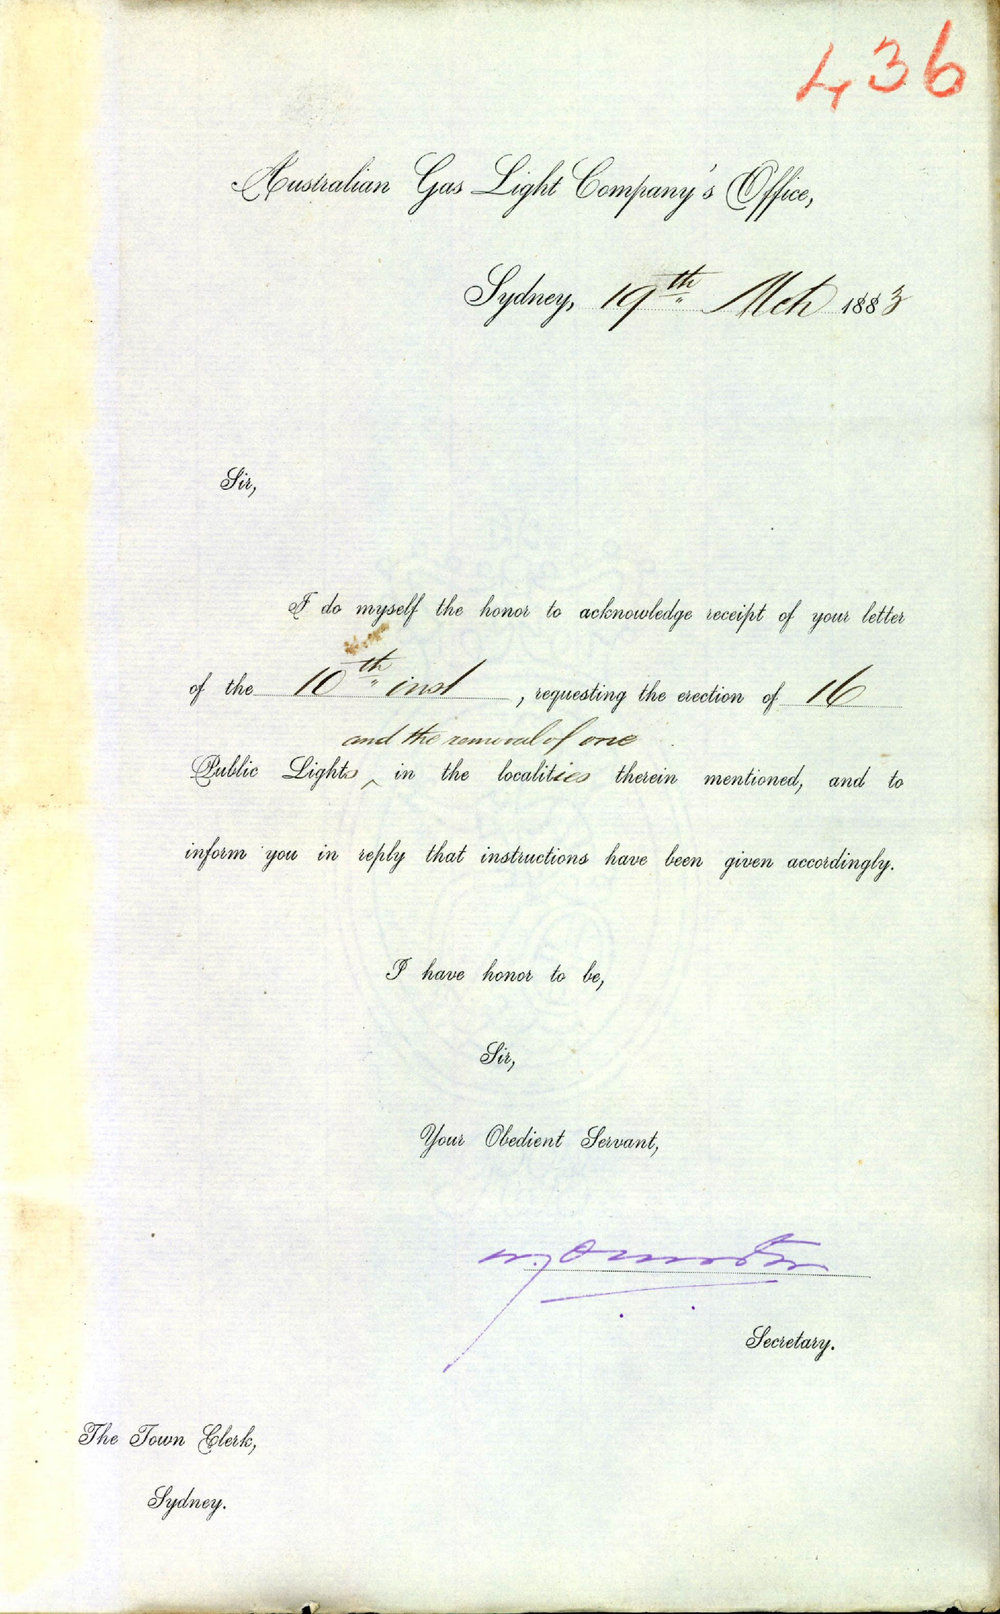 436
Australian Gas Light Company's Office,
Sydney, 19th Mch 1883
Sir,
I do myself the honor to acknowledge receipt of your letter
of the 10th inst, requesting the erection of 16
and the removal of one
Public Lights ^ in the localities therein mentioned, and to
inform you in reply that instructions have been given accordingly.
I have honor to be,
Sir,
Your Obedient Servant,
Secretary.
The Town Clerk,
Sydney.